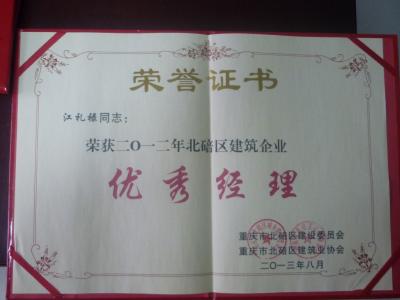 荣誉证书
江礼禄同志：
荣获二〇一二年北碚区建筑企业
优秀经理
重庆市北碚区建设委员会
重庆市北碚区建筑业协会
二〇一三年八月